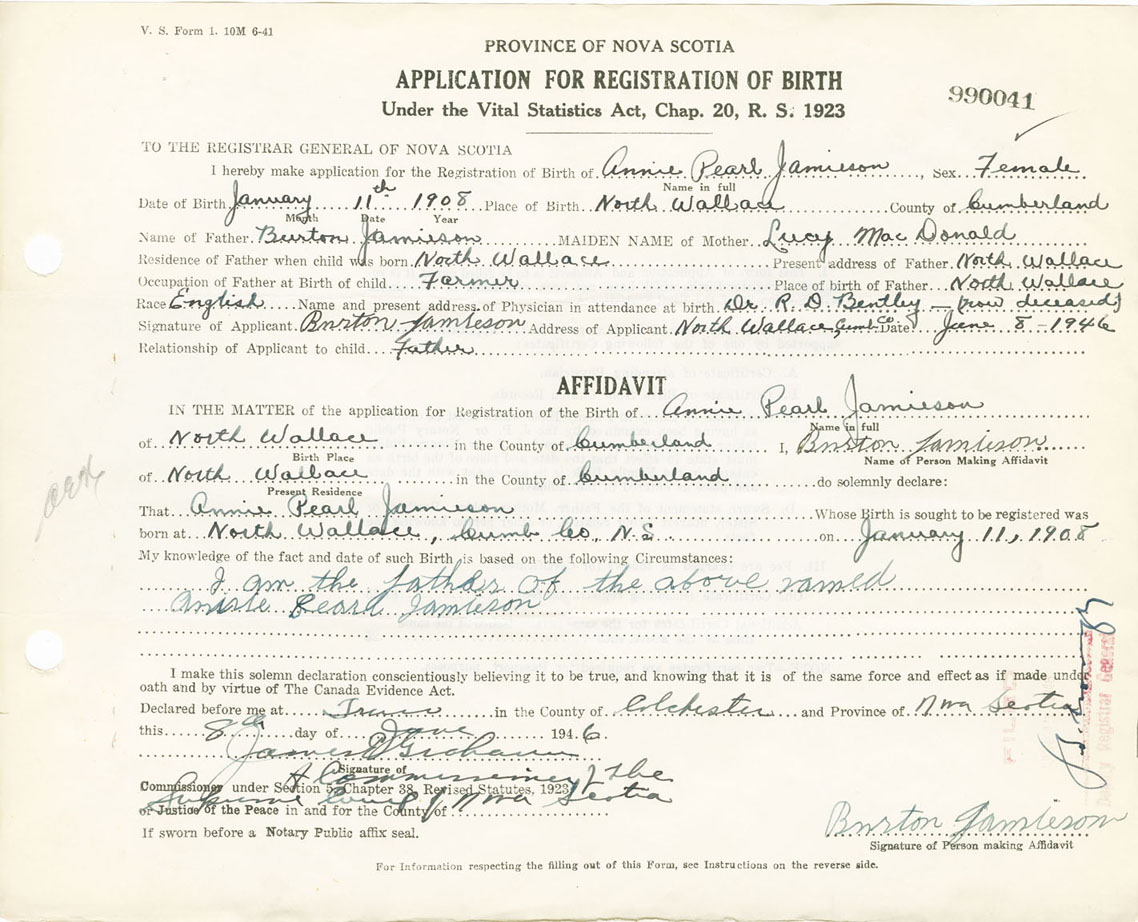 V. S. Form 1. 10M 6-41
PROVINCE OF NOVA SCOTIA
APPLICATION FOR REGISTRATION OF BIRTH
990041
Under the Vital Statistics Act, Chap. 20, R. S. 1923
TO THE REGISTRAR GENERAL OF NOVA SCOTIA
I hereby make application for the Registration of Birth of Annie Pearl Jamieson, Sex Female
Name in full
Date of Birth January 11th 1908 Place of Birth North Wallace County of Cumberland
Month Date Year
Name of Father Burton Jamieson MAIDEN NAME of Mother Lucy MacDonald
Residence of Father when child was born North Wallace Present address of Father North Wallace
Occupation of Father at Birth of child Farmer Place of birth of Father North Wallace
Race English Name and present address of Physician in attendance at birth Dr. R. D. Bentley - (now deceased)
Signature of Applicant Burton Jamieson Address of Applicant North Wallace Cumb Co Date June 8 - 1946
Relationship of Applicant to child Father
AFFIDAVIT
IN THE MATTER of the application for Registration of the Birth of Annie Pearl Jamieson
Name in full
of North Wallace in the County of Cumberland I, Burton Jamieson
Birth Place Name of Person Making Affidavit
of North Wallace in the County of Cumberland do solemnly declare:
Present Residence
That Annie Pearl Jamieson Whose Birth is sought to be registered was
born at North Wallace, Cumb Co, N.S on January 11, 1908
My knowledge of the fact and date of such Birth is based on the following Circumstances:
I am the father of the above named
Pearl Jamieson
I make this solemn declaration conscientiously believing it to be true, and knowing that it is of the same force and effect as if made under
oath and by virtue of The Canada Evidence Act.
Declared before me at Truro in the County of Colchester and Province of Nova Scotia
this 8th day of June 1946.
James Graham
Signature of
A Commissioner of the
Commissioner under Section 5, Chapter 38, Revised Statutes, 1923
Supreme Court of Nova Scotia
or Justice of the Peace in and for the County of
If sworn before a Notary Public affix seal.
Burton Jamieson
Signature of Person making Affidavit
For Information respecting the filling out of this Form, see Instructions on the reverse side.